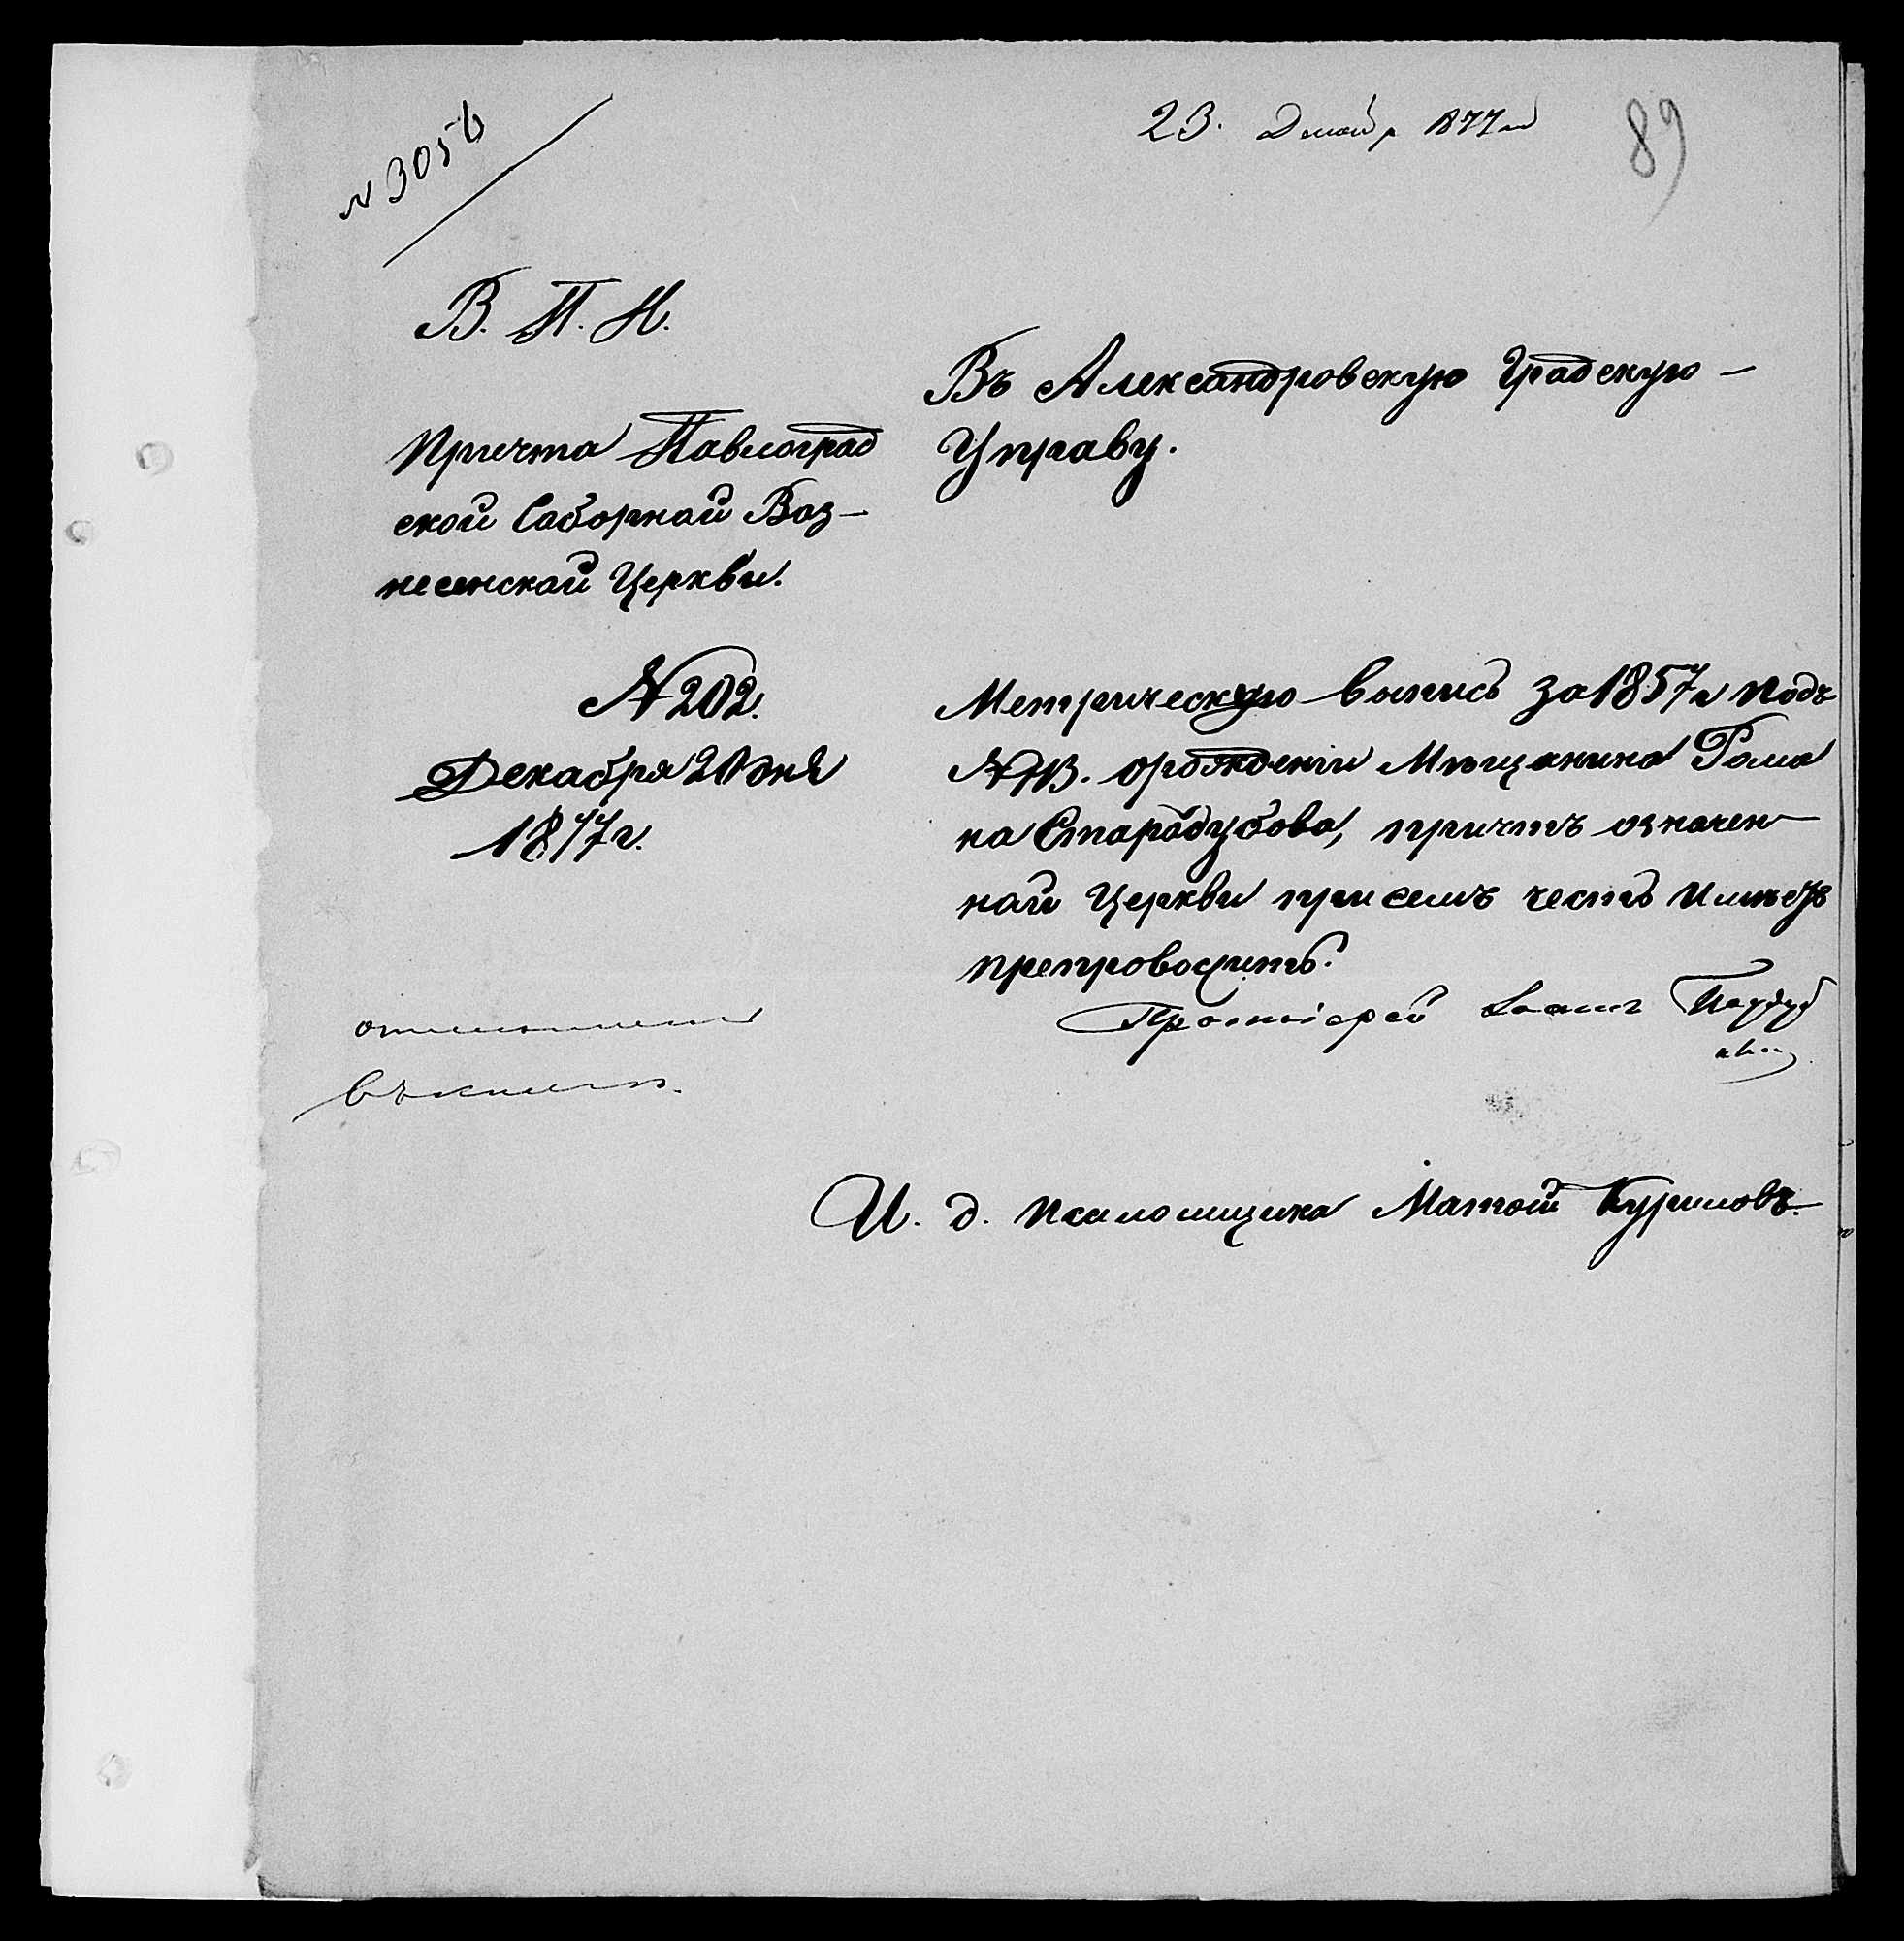 N 3056
23. Декабр 1877 г
89
В. П. И.
Причта Павлоград
ской Соборной Воз-
несенской Церкви.
N 202.
Декабря 20 дня
1877 г.
Въ Александровскую Градскую -
Управу.
Метрическую выпись за 1857 г Подъ
N орождении Мѣщанина Рома
на Стародубова, причтъ означен
ной Церкви при семъ честь Имѣетъ
препроводить.
Протоіерей Іоаннъ
И. д. псаломщика Матвей Куриловъ.